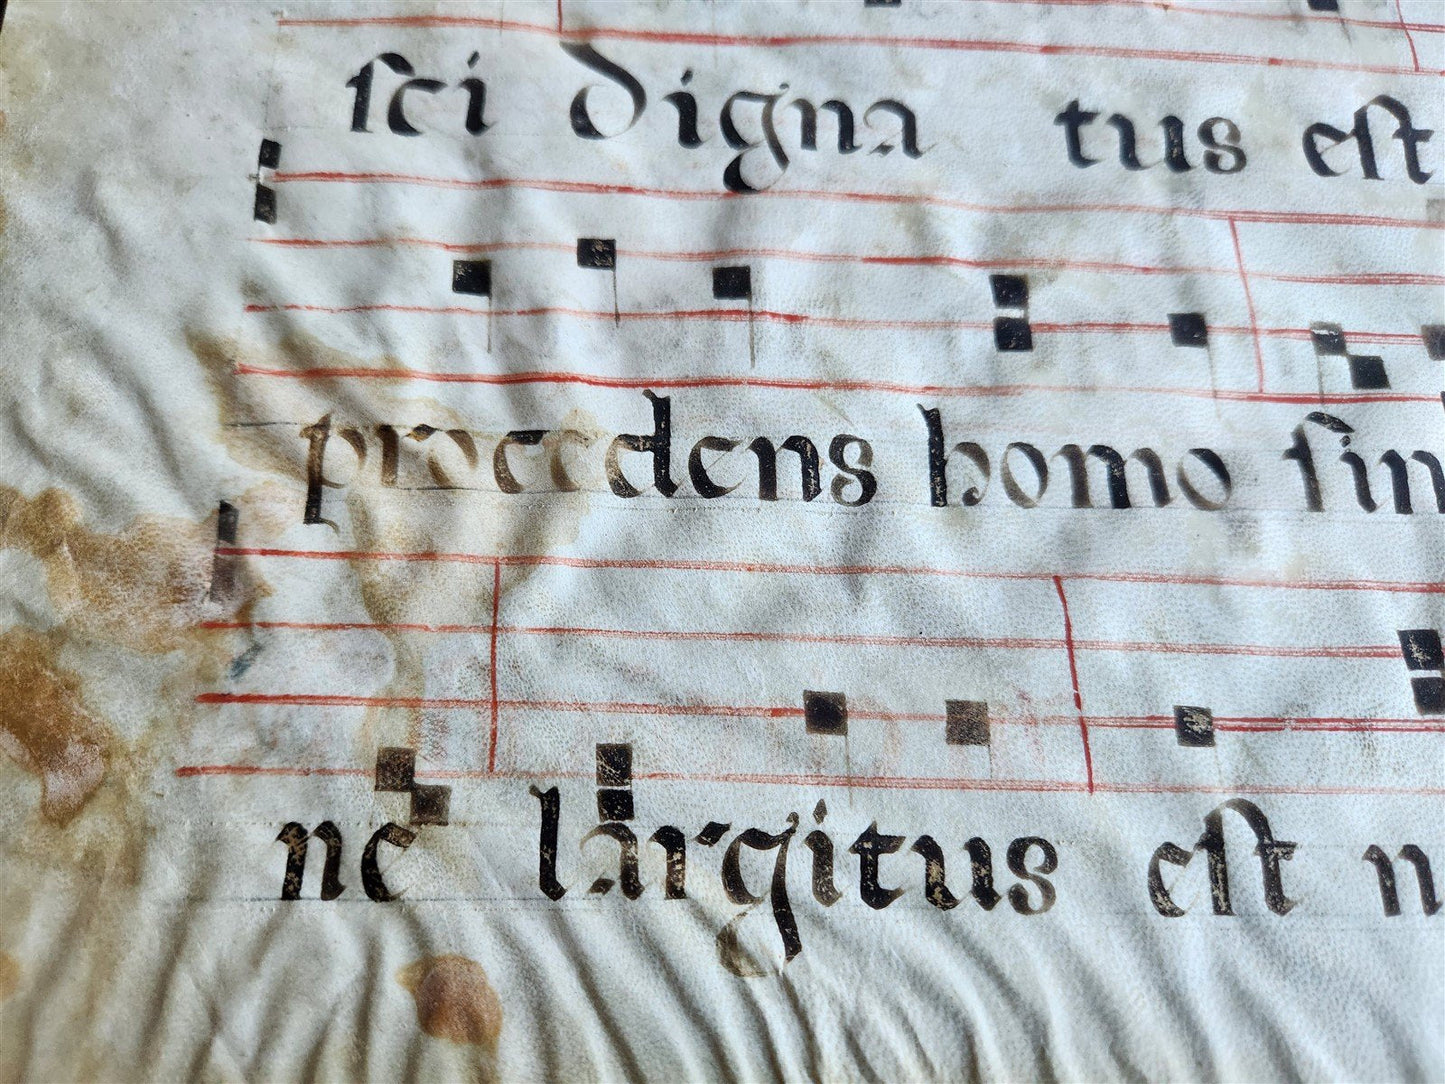 sci digna tus est
procedens homo sin
ne largitus est n